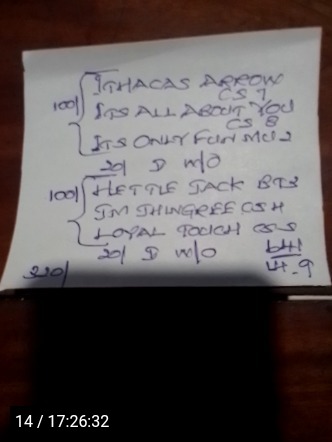 ITHACAS ARROW
CS 7
100/ ITS ALL ABOUT YOU
CS 8
ITS ONLY FUN MU 2
20/ D W/O
100/ HETTIE JACK BT3
IM SHINGREE CS H
LOYAL TOUCH
20/ D W/O
14.9
14 / 17:26:32